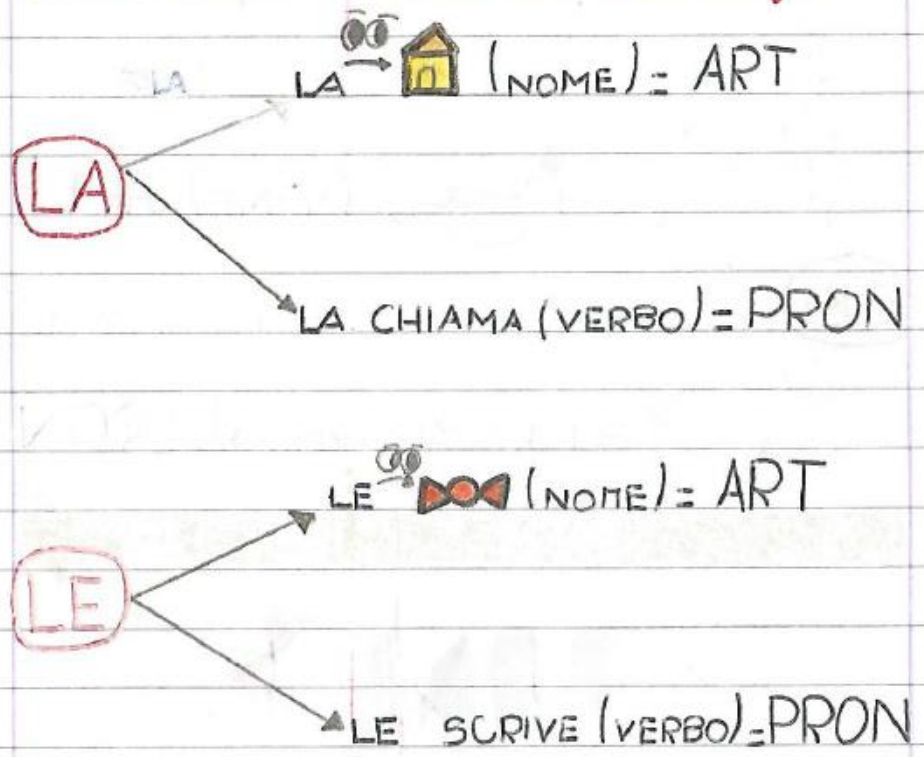 LA (NOME) = ART
LA
LA
LA CHIAMA (VERBO) = PRON
LE (NOME) = ART
LE
LE SCRIVE (VERBO) = PRON